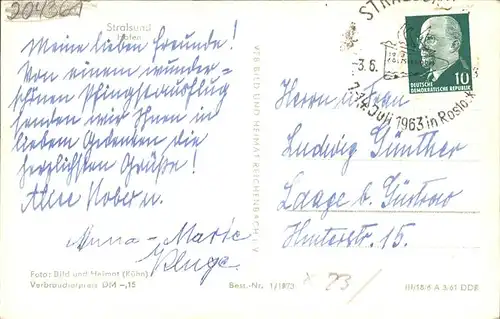 204361
Stralsund
Hafen
Meine lieben Freunde!
Von einem wunder-
schönen Pfingstausflug
senden wir Ihnen in
lieben Gedenken die
herzlichsten Grüße!
Anna-Marie
Kluge
Foto: Bild und Heimat (Kühn)
Verbraucherpreis DM -,15
Best.-Nr. 1/1873
VEB BILD UND HEIMAT REICHENBACH I. V.
STRALSUND
-3.6.
Juli 1963 in Rostock
10
DEUTSCHE
DEMOKRATISCHE REPUBLIK
Herrn u. Frau
Ludwig Günther
Laage b. Güstrow
Hinterstr. 15.
x 23/
III/18/6 A 3/61 DDR